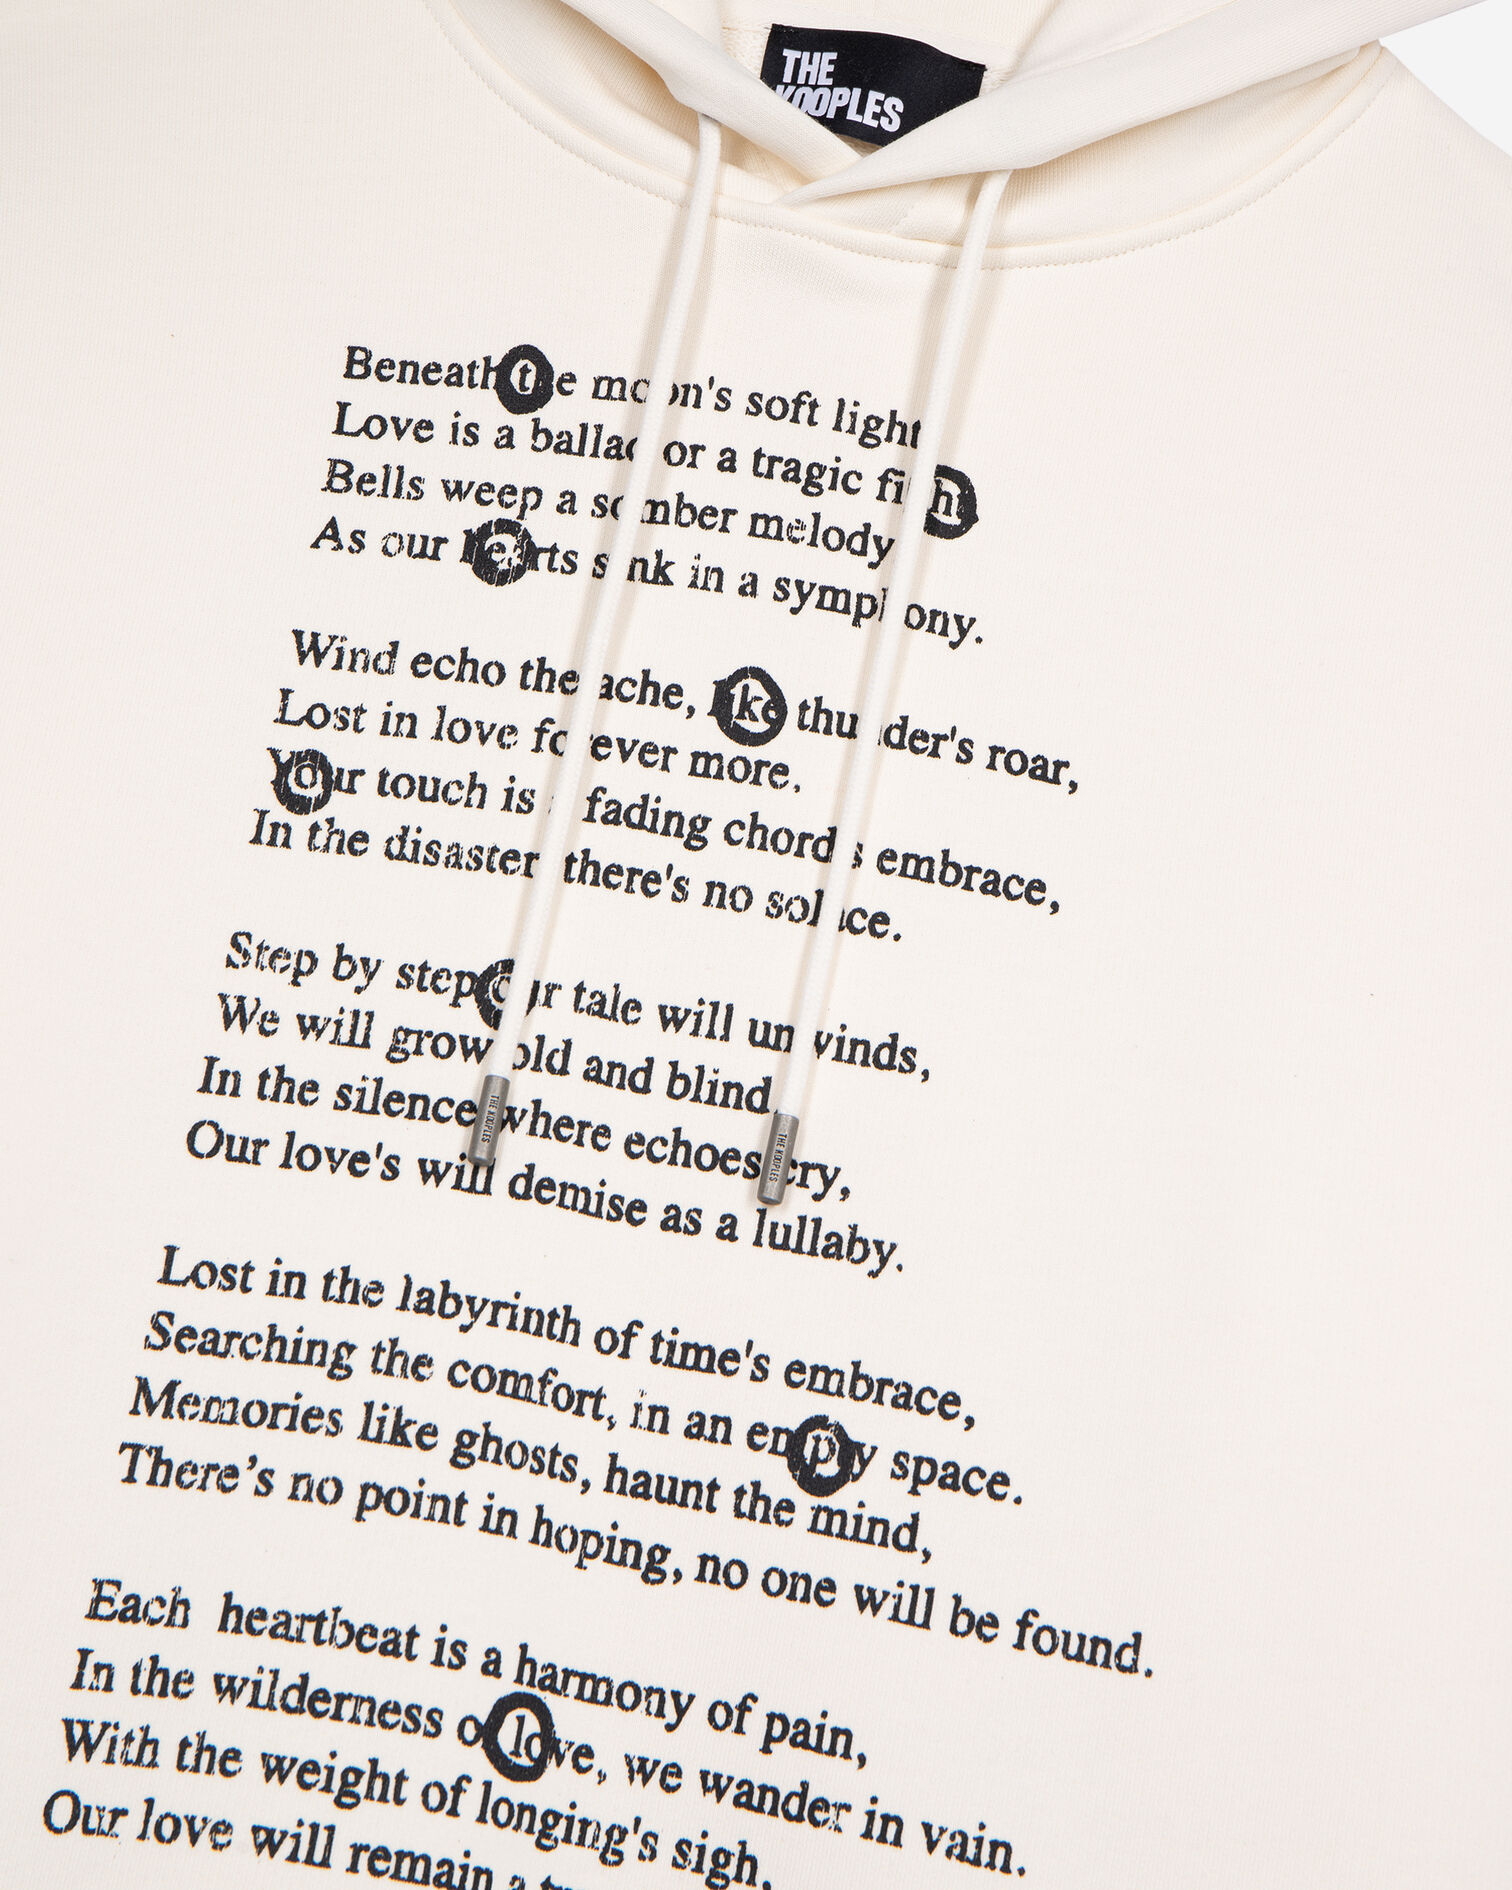 THE
KOOPLES
Beneath the moon's soft light
Love is a ballad or a tragic fight
Bells weep a somber melody
As our hearts sink in a symphony.
Wind echo the ache, like thunder's roar,
Lost in love forever more.
Your touch is a fading chord's embrace,
In the disaster there's no solace.
Step by step our tale will unwinds,
We will grow old and blind,
In the silence where echoes cry,
Our love's will demise as a lullaby.
THE KOOPLES
THE KOOPLES
Lost in the labyrinth of time's embrace,
Searching the comfort, in an empy space.
Memories like ghosts, haunt the mind,
There’s no point in hoping, no one will be found.
Each heartbeat is a harmony of pain,
In the wilderness of love, we wander in vain.
With the weight of longing's sigh,
Our love will remain a